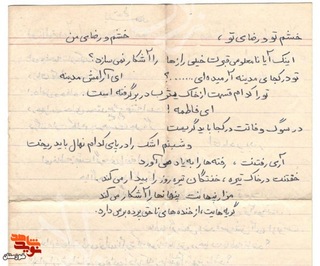 خشم تو و رضای تو، خشم و رضای من
اینک آیا نامعلومی قبرت خیلی رازها را آشکار نمی سازد؟
تو در کجای مدینه آرمیده ای.......؟ ای آرامش مدینه
تو را کدام قسمت از خاک یثرب در بر گرفته است.
ای فاطمه!
در سوگ وفاتت در کجا باید گریست
و شبنم اشک را در پای کدام نهال باید ریخت
آری رفتنت، رفته ها را به یاد می آورد
خفتنت در خاک تیره، خفتگان تیره روز را بیدار می کند
مزار پنهانت پنهانها را آشکار می کند
گریه هایت، از خنده های ناحق پرده بر می دارد.
نوید شاهد
خوزستان